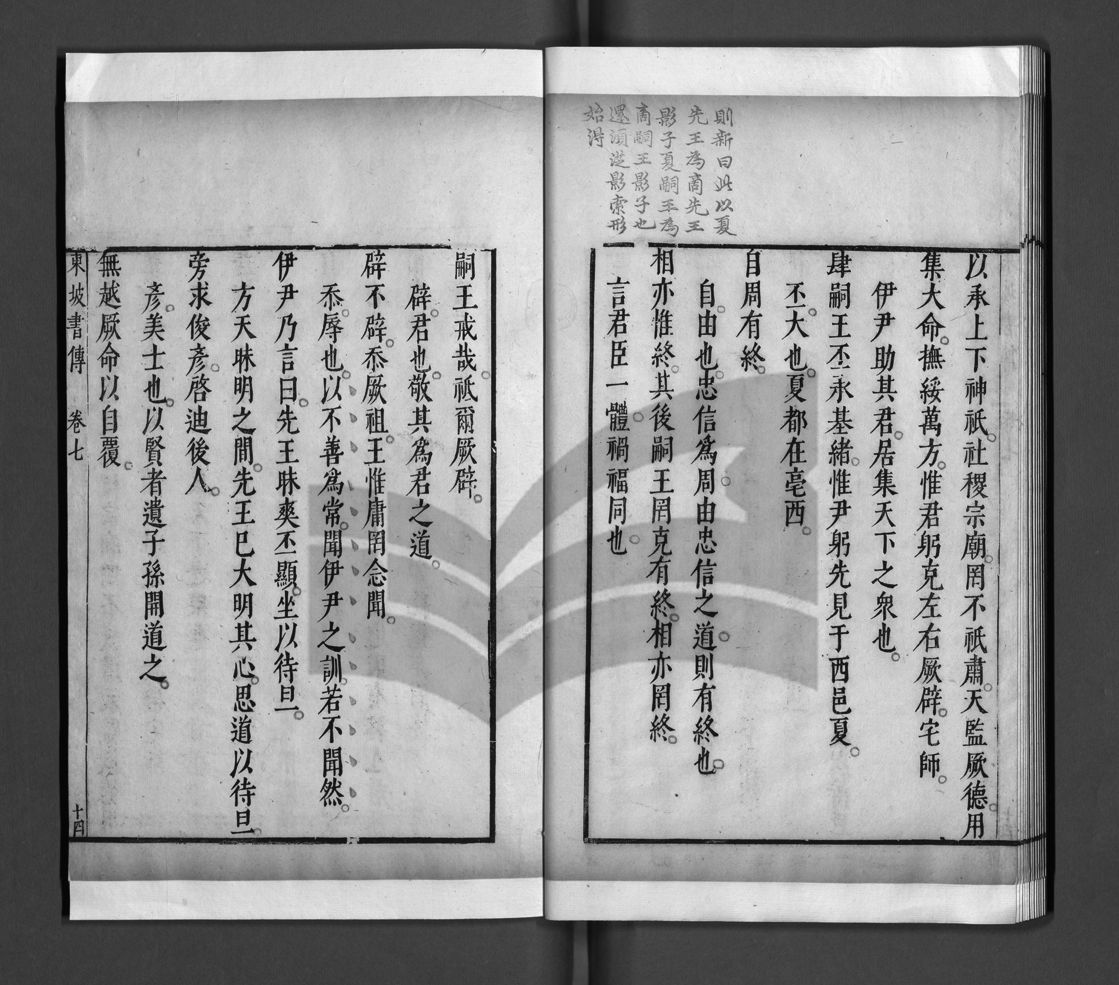 則新曰此以夏
先王為商先王
影子夏嗣王為
商嗣王影子也
還須從影索形
始得
以承上下神祇社稷宗廟罔不祇肅天監厥德用
集大命撫綏萬方惟君躬克左右厥辟宅師
伊尹助其君居集天下之衆也
肆嗣王丕承基緒惟尹躬先見于西邑夏
丕大也夏都在亳西
自周有終
自由也忠信爲周由忠信之道則有終也
相亦惟終其後嗣王罔克有終相亦罔終
言君臣一體禍福同也
嗣王戒哉祗爾厥辟
辟君也敬其爲君之道
辟不辟忝厥祖王惟庸罔念聞
忝辱也以不善爲常聞伊尹之訓若不聞然
伊尹乃言曰先王昧爽丕顯坐以待旦
方天昧明之間先王已大明其心思道以待旦
旁求俊彥啓迪後人
彥美士也以賢者遺子孫開道之
無越厥命以自覆
東坡書傳 卷七 十四